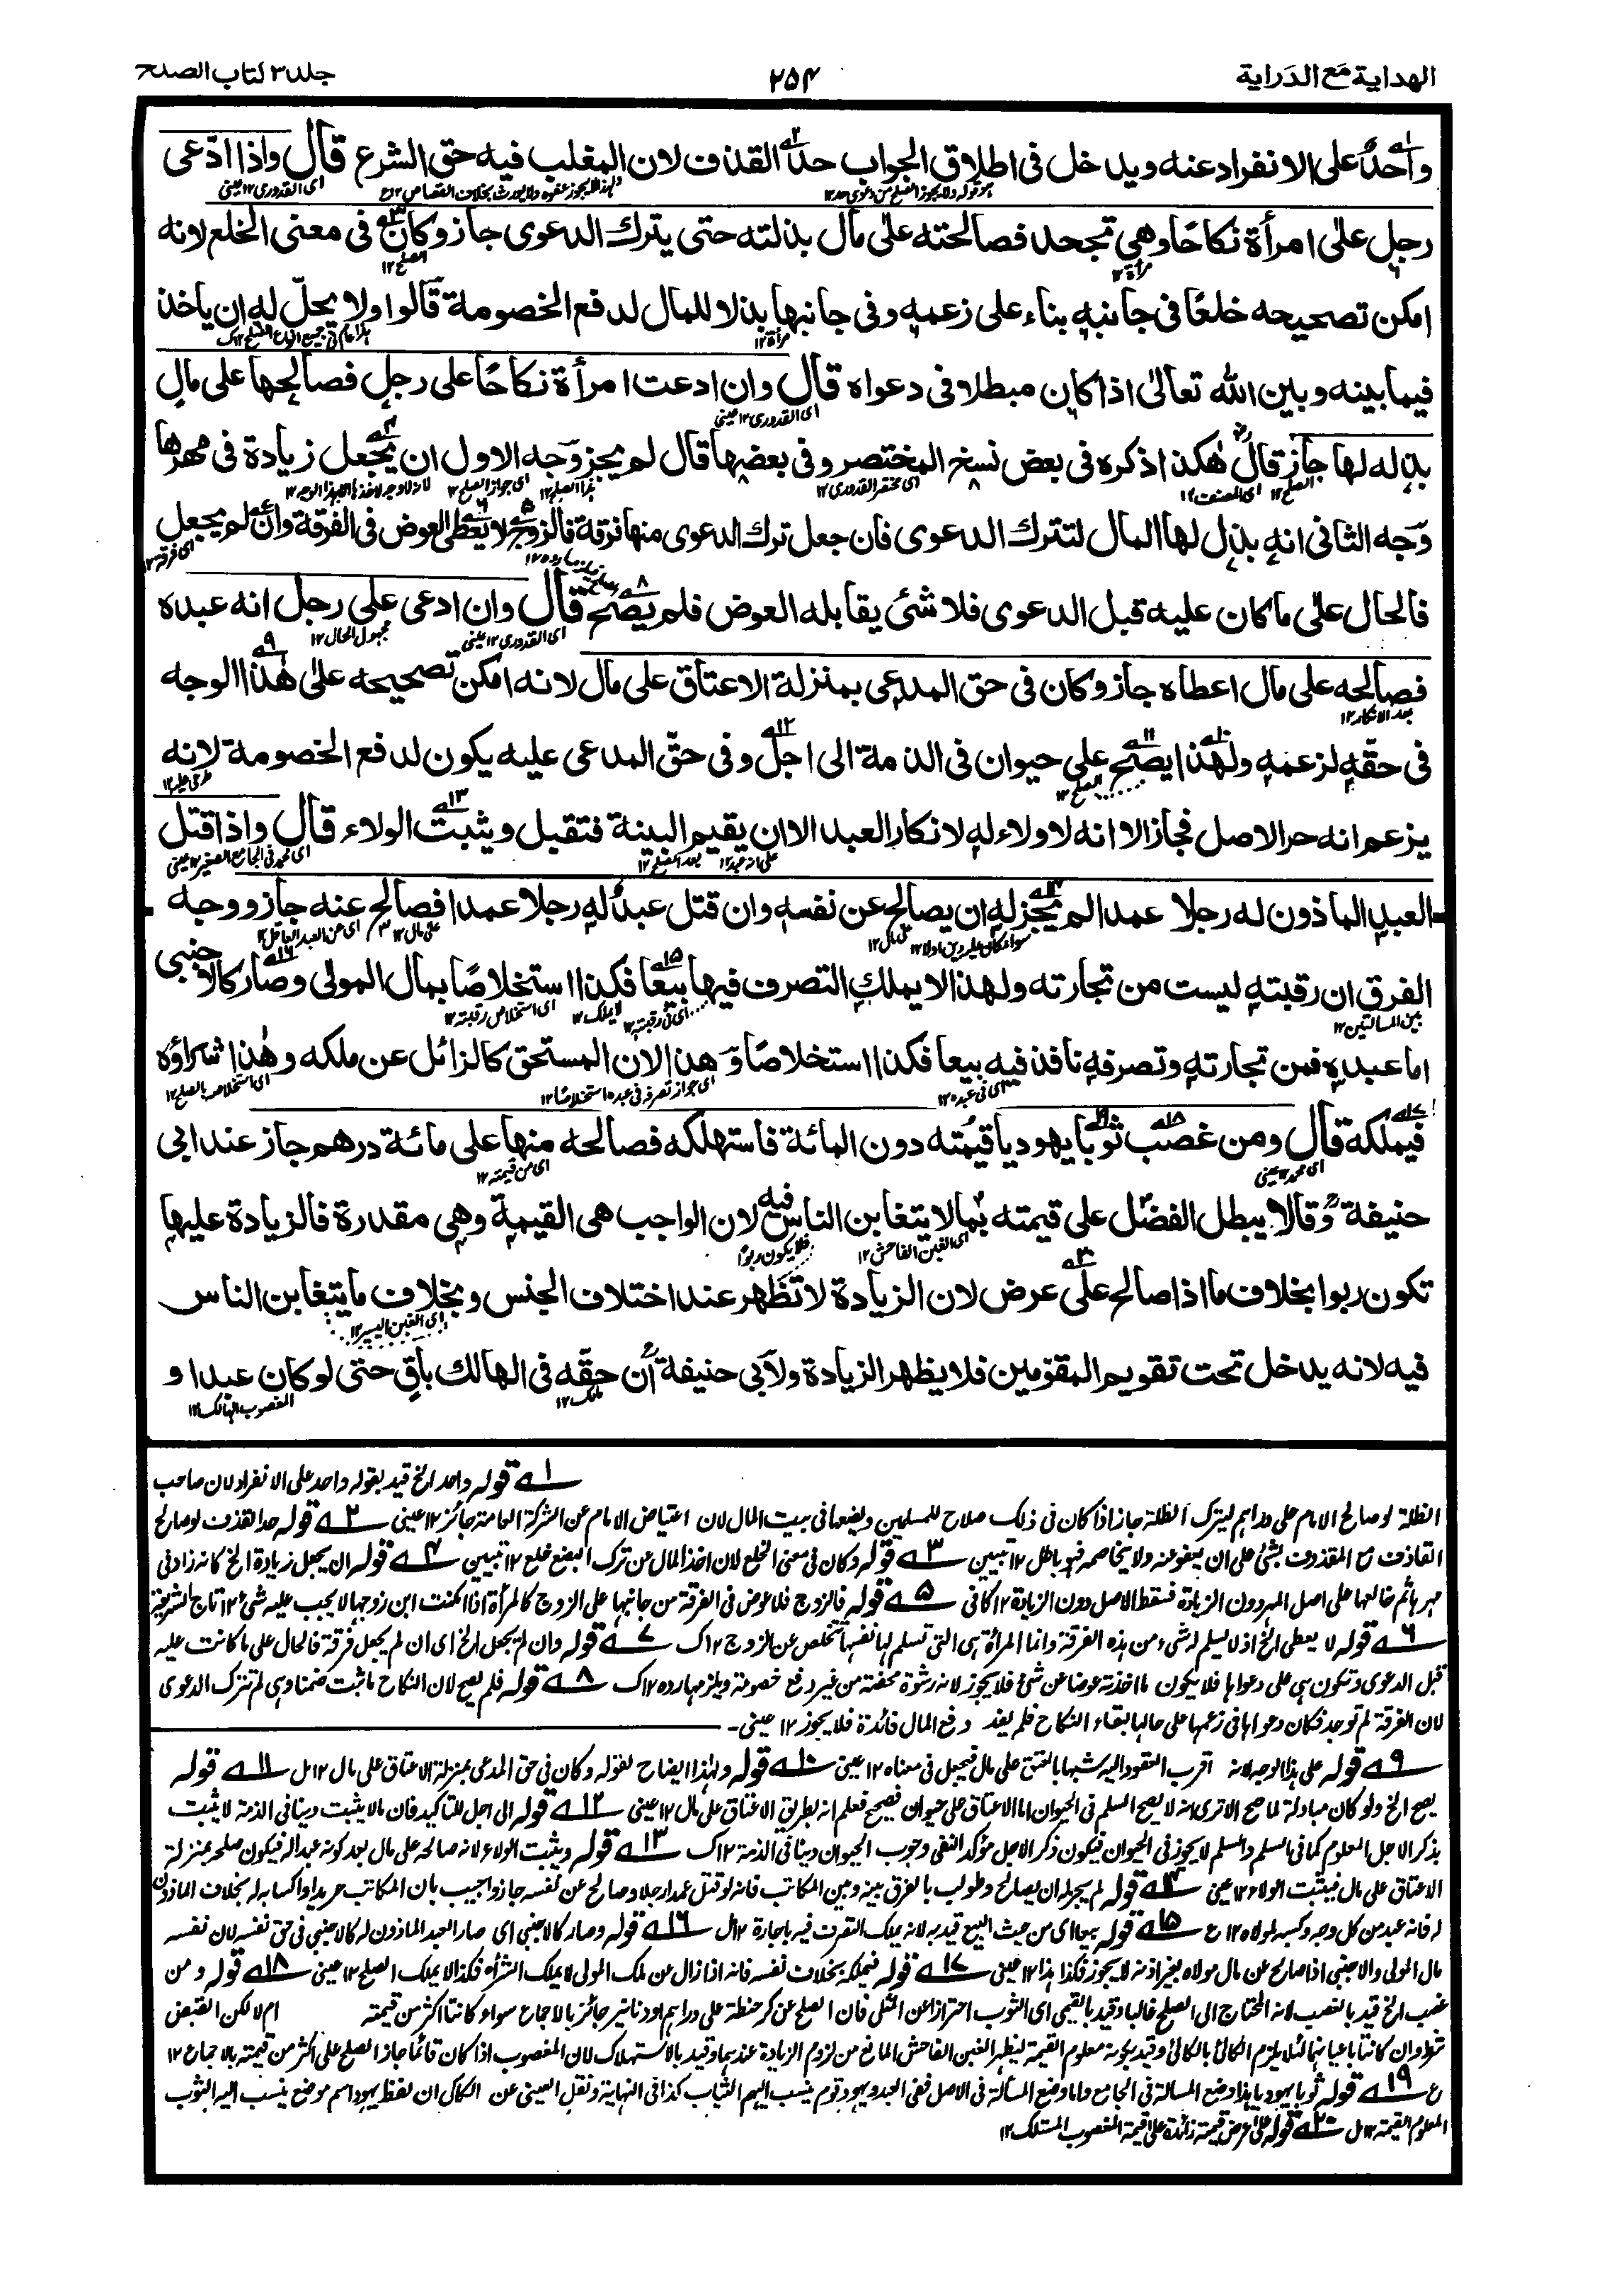 الهداية مع الدراية
٢٥٤
جلد ٣ كتاب الصلح
واحد على الانفراد عنه ويدخل فى اطلاق الجواب حد القذف لان المغلب فيه حق الشرع قال واذا ادّعى
رجل على امرأة نكاحًا وهي تجحد فصالحته على مال بذلته حتى يترك الدعوى جاز وكان فى معنى الخلع لانه
امكن تصحيحه خلعًا فى جانبه بناء على زعمه وفى جانبها بذلا للمال لدفع الخصومة قالوا ولا يحلّ له ان ياخذ
فيما بينه وبين الله تعالىٰ اذا كان مبطلا فى دعواه قال وان ادعت امرأة نكاحًا على رجل فصالحها على مال
بذله لها جاز قال هٰكذا ذكره فى بعض نسخ المختصر وفى بعضها قال لم يجز وجه الاول ان يجعل زيادة فى مهرها
وجه الثانى انه بذل لها المال لتترك الدعوى فان جعل ترك الدعوى منها فرقة فالزوج لا يعطى العوض فى الفرقة وان لم يجعل
فالحال على ما كان عليه قبل الدعوى فلا شئ يقابله العوض فلم يصح قال وان ادعى على رجل انه عبده
فصالحه على مال اعطاه جاز وكان فى حق المدعى بمنزلة الاعتاق على مال لانه امكن تصحيحه على هٰذا الوجه
فى حقّه لزعمه ولهٰذا يصح على حيوان فى الذمة الى اجل وفى حقّ المدعى عليه يكون لدفع الخصومة لانه
يزعم انه حر الاصل فجاز الا انه لا ولاء له لانكار العبد الا ان يقيم البينة فتقبل ويثبت الولاء قال واذا قتل
العبد الماذون له رجلا عمدا لم يجز له ان يصالح عن نفسه وان قتل عبدٌ له رجلا عمدا فصالح عنه جاز ووجه
الفرق ان رقبته ليست من تجارته ولهذا لا يملك التصرف فيها بيعا فكذا استخلاصًا بمال المولى وصار كالاجنبى
اما عبده فمن تجارته وتصرفه نافذ فيه بيعا فكذا استخلاصًا وهذا لان المستحق كالزائل عن ملكه وهٰذا شراؤه
فيملكه قال ومن غصب ثوبا يهوديا قيمته دون المائة فاستهلكه فصالحه منها على مائة درهم جاز عند ابى
حنيفة وقالا يبطل الفضل على قيمته بما لا يتغابن الناس فيه لان الواجب هى القيمة وهى مقدرة فالزيادة عليها
تكون ربوا بخلاف ما اذا صالح على عرض لان الزيادة لا تظهر عند اختلاف الجنس وبخلاف ما يتغابن الناس
فيه لانه يدخل تحت تقويم المقوّمين فلا يظهر الزيادة ولابى حنيفة ان حقّه فى الهالك باقٍ حتى لو كان عبدا و
١ قوله واحد الخ قيد بقوله واحد على الانفراد لان صاحب
الظلة لو صالح الامام على دراهم ليترك الظلة جاز اذا كان فى ذلك صلاح للمسلمين ويضعها فى بيت المال لان اعتياض الامام عن الشركة العامة جائز ١٢ عينى ٢ قوله حد القذف لو صالح
القاذف مع المقذوف بشئ على ان يعفو عنه ولا يخاصمه فهو باطل ١٢ تبيين ٣ قوله وكان فى معنى الخلع لان اخذ المال عن ترك البضع خلع ١٢ تبيين ٤ قوله ان يجعل زيادة الخ كانه زاد فى
مهرها ثم خالعها على اصل المهر دون الزيادة فسقط الاصل دون الزيادة ١٢ كافى ٥ قوله فالزوج فلا عوض فى الفرقة من جانبها على الزوج كالمرأة اذا مكنت ابن زوجها لا يجب عليه شئ ١٢ تاج الشريعة
٦ قوله لا يعطى الخ اذ لا يسلم له شئ من هذه الفرقة وانما المرأة هى التى تسلم لها نفسها تتخلص عن الزوج ١٢ ك ٧ قوله وان لم يجعل الخ اى ان لم يجعل فرقة فالحال على ما كانت عليه
قبل الدعوى وتكون هى على دعواها فلا يكون ما اخذته عوضا عن شئ فلا يجوز لانه رشوة محضة من غير دفع خصومة ويلزمها رده ١٢ ك ٨ قوله فلم يصح لان النكاح ما ثبت ضمنا وهى لم تترك الدعوى
لان الفرقة لم توجد فكان دعواها فى زعمها على حالها بقاء النكاح فلم يفد دفع المال فائدة فلا يجوز ١٢ عينى -
٩ قوله على هذا الوجه لانه اقرب العقود اليه شبها بالعتق على مال فيجعل فى معناه ١٢ عينى ١٠ قوله ولهذا ايضاح لقوله وكان فى حق المدعى بمنزلة الاعتاق على مال ١٢ مل ١١ قوله
يصح الخ ولو كان مبادلة لما صح الا ترى انه لا يصح السلم فى الحيوان اما الاعتاق على حيوان فصحيح فعلم انه بطريق الاعتاق على مال ١٢ عينى ١٢ قوله الى اجل للتاكيد فان مالا يثبت دينا فى الذمة لا يثبت
بذكر الاجل المعلوم كما فى السلم والسلم لا يجوز فى الحيوان فيكون ذكر الاجل مؤكد النفى وجوب الحيوان دينا فى الذمة ١٢ ك ١٣ قوله ويثبت الولاء لانه صالحه على مال بعد كونه عبدا له فيكون صلحه بمنزلة
الاعتاق على مال فيثبت الولاء ١٢ عينى ١٤ قوله لم يجز له ان يصالح وطولب بالفرق بينه وبين المكاتب فانه لو قتل عمدا رجلا وصالح عن نفسه جاز واجيب بان المكاتب حر يدا واكسابه له بخلاف الماذون
له فانه عبد من كل وجه وكسبه لمولاه ١٢ ع ١٥ قوله بيعا اى من حيث البيع قيد به لانه يملك التصرف فيه باجارة ١٢ مل ١٦ قوله وصار كالاجنبى اى صار العبد الماذون له كالاجنبى فى حق نفسه لان نفسه
مال المولى والاجنبى اذا صالح عن مال مولاه بغير اذنه لا يجوز فكذا هذا ١٢ عينى ١٧ قوله فيملكه بخلاف نفسه فانه اذا زال عن ملك المولى لا يملك الشراء فكذا لا يملك الصلح ١٢ عينى ١٨ قوله ومن
غصب الخ قيد بالغصب لانه المحتاج الى الصلح غالبا وقيد بالقيمى اى الثوب احترازا عن المثلى فان الصلح عن كر حنطة على دراهم او دنانير جائز بالاجماع سواء كانتا اكثر من قيمته ام لا لكن القبض
شرط وان كانتا باعيانهما لئلا يلزم الكالئ بالكالئ وقيد بكونه معلوم القيمة ليظهر الغبن الفاحش المانع من لزوم الزيادة عندهما وقيد بالاستهلاك لان المغصوب اذا كان قائما جاز الصلح على اكثر من قيمته بالاجماع ١٢
ع ١٩ قوله ثوبا يهوديا هذا وضع المسالة فى الجامع واما وضع المسألة فى الاصل ففى العبد ويهود قوم ينسب اليهم الثياب كذا فى النهاية ونقل العينى عن الكاكى ان لفظ يهود اسم موضع ينسب اليه الثوب
المعلوم القيمة ١٢ مل ٢٠ قوله على عرض قيمته زائدة على قيمة المغصوب المستهلك ١٢